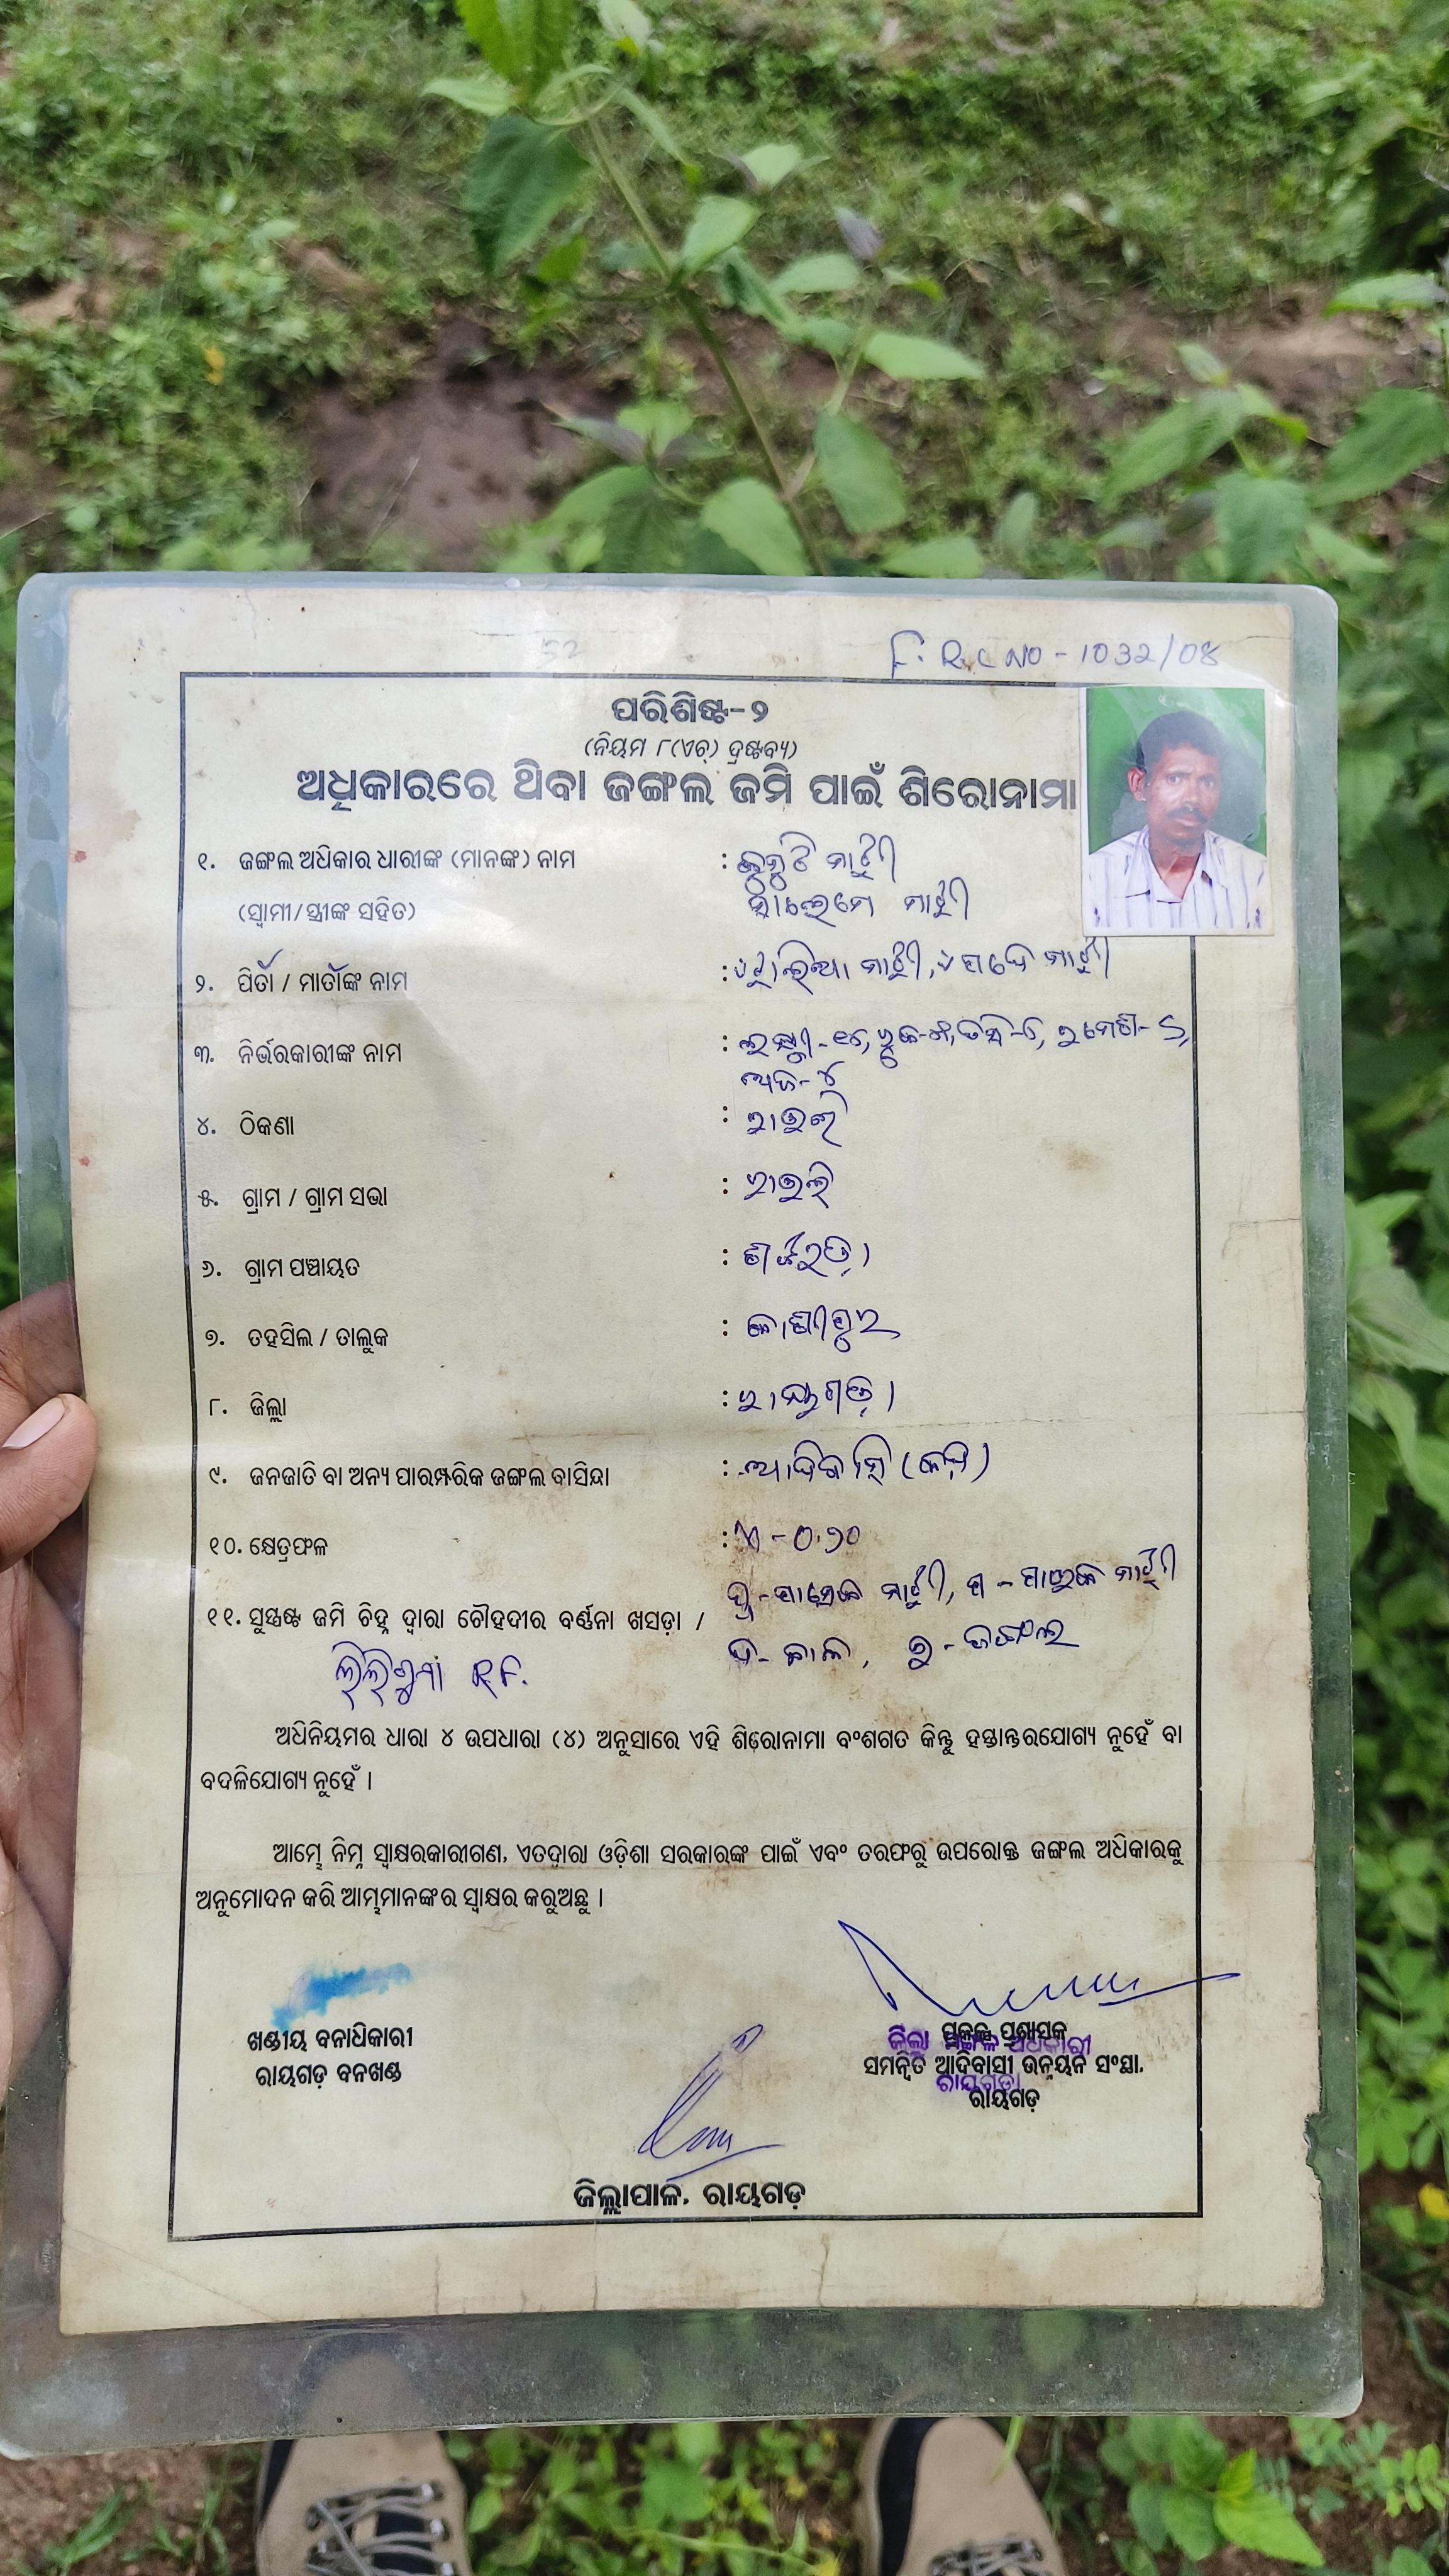 52
F.R.C NO - 1032/08
ପରିଶିଷ୍ଟ-୨
(ନିୟମ ୮(ଏଚ୍) ଦ୍ରଷ୍ଟବ୍ୟ)
ଅଧିକାରରେ ଥିବା ଜଙ୍ଗଲ ଜମି ପାଇଁ ଶିରୋନାମା
୧. ଜଙ୍ଗଲ ଅଧିକାର ଧାରୀଙ୍କ (ମାନଙ୍କ) ନାମ : ମାଝୀ
(ସ୍ୱାମୀ/ସ୍ତ୍ରୀଙ୍କ ସହିତ) ମାଝୀ
୨. ପିତା / ମାତାଙ୍କ ନାମ : ମାଝୀ, ମାଝୀ
୩. ନିର୍ଭରକାରୀଙ୍କ ନାମ :
୪. ଠିକଣା : ରାଉଲି
୫. ଗ୍ରାମ / ଗ୍ରାମ ସଭା : ରାଉଲି
୬. ଗ୍ରାମ ପଞ୍ଚାୟତ :
୭. ତହସିଲ / ତାଲୁକ : କାଶୀପୁର
୮. ଜିଲ୍ଲା : ରାୟଗଡ଼ା
୯. ଜନଜାତି ବା ଅନ୍ୟ ପାରମ୍ପରିକ ଜଙ୍ଗଲ ବାସିନ୍ଦା : ଆଦିବାସି (କନ୍ଧ)
୧୦. କ୍ଷେତ୍ରଫଳ : ଏ - ୦.୨୦
୧୧. ସୁସ୍ପଷ୍ଟ ଜମି ଚିହ୍ନ ଦ୍ୱାରା ଚୌହଦୀର ବର୍ଣ୍ଣନା ଖସଡ଼ା / ପୂ - ମାଝୀ, ପ - ମାଝୀ
ଦ - , ଉ - ଜଙ୍ଗଲ
R.F.
ଅଧିନିୟମର ଧାରା ୪ ଉପଧାରା (୪) ଅନୁସାରେ ଏହି ଶିରୋନାମା ବଂଶଗତ କିନ୍ତୁ ହସ୍ତାନ୍ତରଯୋଗ୍ୟ ନୁହେଁ ବା
ବଦଳିଯୋଗ୍ୟ ନୁହେଁ ।
ଆମ୍ଭେ ନିମ୍ନ ସ୍ୱାକ୍ଷରକାରୀଗଣ, ଏତଦ୍ୱାରା ଓଡ଼ିଶା ସରକାରଙ୍କ ପାଇଁ ଏବଂ ତରଫରୁ ଉପରୋକ୍ତ ଜଙ୍ଗଲ ଅଧିକାରକୁ
ଅନୁମୋଦନ କରି ଆମ୍ଭମାନଙ୍କର ସ୍ୱାକ୍ଷର କରୁଅଛୁ ।
ଖଣ୍ଡୀୟ ବନାଧିକାରୀ
ରାୟଗଡ଼ ବନଖଣ୍ଡ
ପ୍ରକଳ୍ପ ପ୍ରଶାସକ
ଜିଲ୍ଲା ମଙ୍ଗଳ ଅଧିକାରୀ
ସମନ୍ୱିତ ଆଦିବାସୀ ଉନ୍ନୟନ ସଂସ୍ଥା,
ରାୟଗଡ଼ା
ରାୟଗଡ଼
ଜିଲ୍ଲାପାଳ, ରାୟଗଡ଼